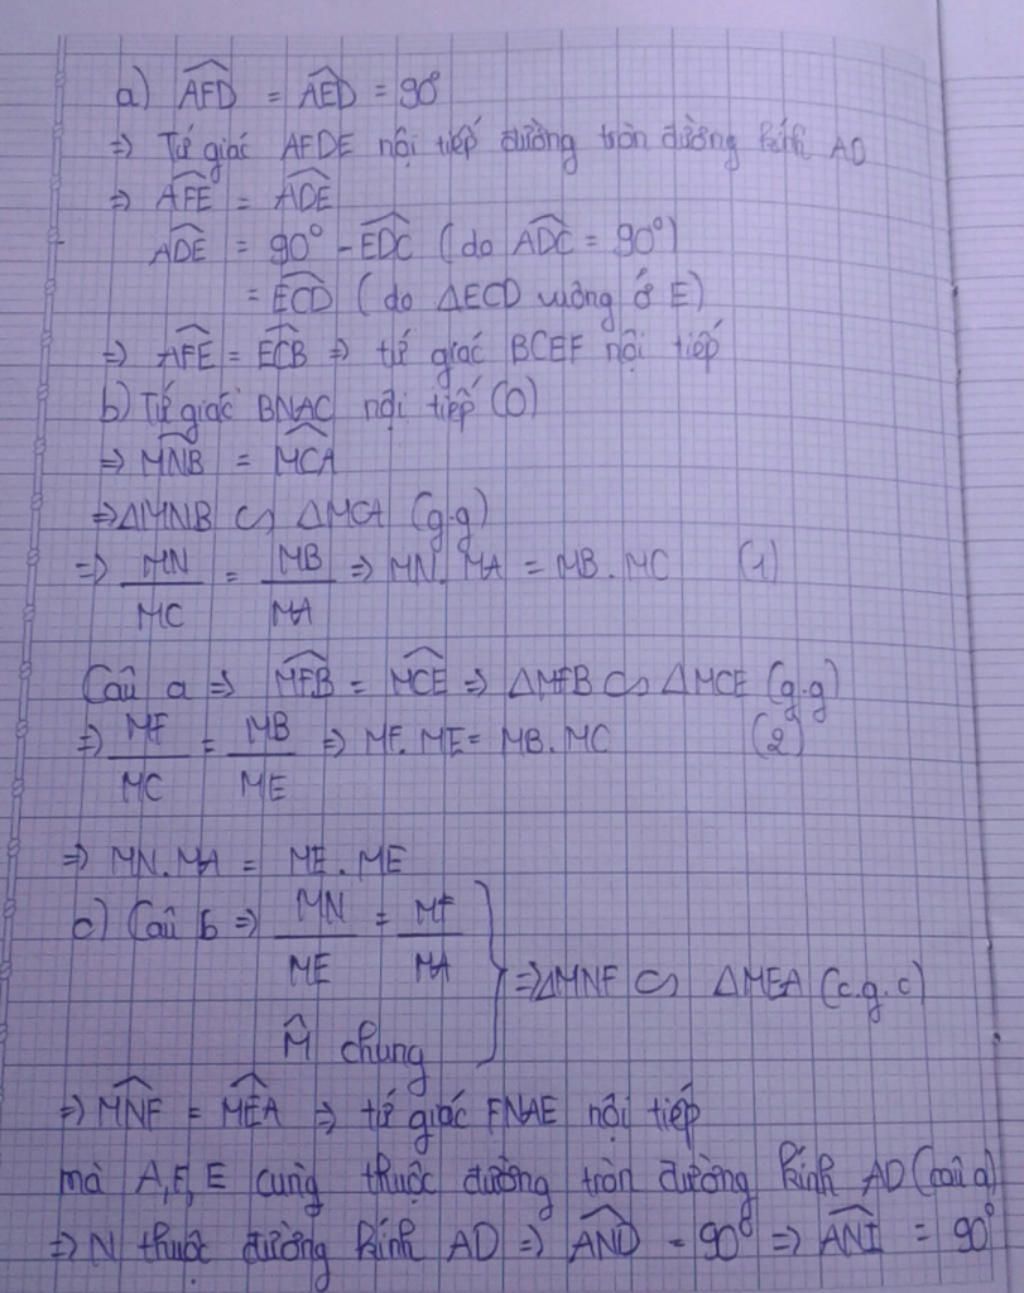 a) \widehat{AFD} = \widehat{AED} = 90°
=> Tứ giác AFDE nội tiếp đường tròn đường kính AD
=> \widehat{AFE} = \widehat{ADE}
\widehat{ADE} = 90° - \widehat{EDC} (do \widehat{ADC} = 90°)
= \widehat{ECD} (do ΔECD vuông ở E)
=> \widehat{AFE} = \widehat{ECB} => tứ giác BCEF nội tiếp
b) Tứ giác BNAC nội tiếp (O)
=> \widehat{MNB} = \widehat{MCA}
=> ΔMNB ∽ ΔMCA (g.g)
=> MN/MC = MB/MA => MN. MA = MB. MC (1)
Câu a => \widehat{MFB} = \widehat{MCE} => ΔMFB ∽ ΔMCE (g.g)
=> MF/MC = MB/ME => MF. ME = MB. MC (2)
=> MN. MA = MF. ME
c) Câu b => MN/ME = MF/MA
} => ΔMNF ∽ ΔMEA (c.g.c)
\widehat{M} chung
=> \widehat{MNF} = \widehat{MEA} => tứ giác FNAE nội tiếp
mà A, F, E cùng thuộc đường tròn đường kính AD (câu a)
=> N thuộc đường kính AD => \widehat{AND} = 90° => \widehat{ANI} = 90°